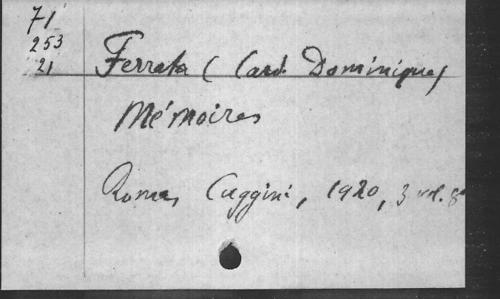 71
253
21
Ferrata (Card. Dominique)
Mémoires
Rome, Cuggini, 1920, 3 vol. 8°